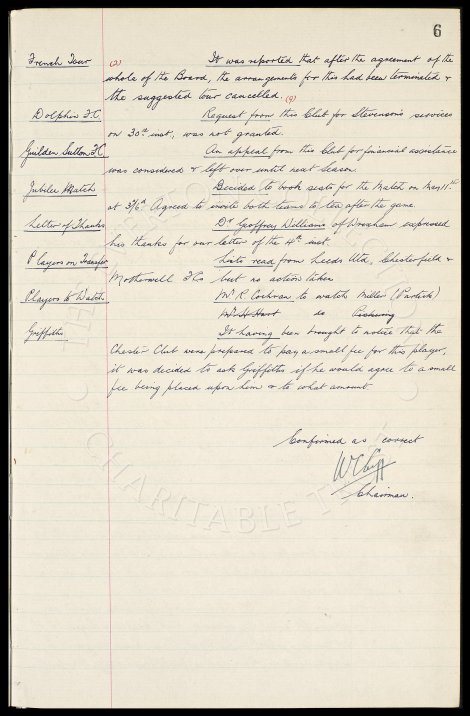 6
French Tour (2) It was reported that after the agreement of the
whole of the Board, the arrangements for this had been terminated &
the suggested tour cancelled. (9)
Dolphin F.C. Request from this Club for Stevenson's services
on 30th inst, was not granted.
Guilden Sutton F.C. An appeal from this Club for financial assistance
was considered & left over until next season.
Jubilee Match Decided to book seats for the Match on May 11th
at 3/6d. Agreed to invite both teams to tea after the game.
Letter of Thanks Dr Geoffrey Williams of Wrexham expressed
his thanks for our letter of the 4th inst.
Players on Transfer Lists read from Leeds Utd, Chesterfield &
Motherwell FCs but no action taken
Players to Watch Mr R Cochran to watch Miller (Partick)
Mr H Hart do
Griffiths It having been brought to notice that the
Chester Club were prepared to pay a small fee for this player,
it was decided to ask Griffiths if he would agree to a small
fee being placed upon him & to what amount.
Confirmed as correct
W C Cuff
Chairman.
CHARITABLE